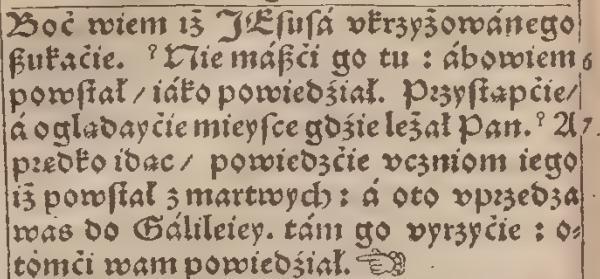 Boć wiem iż JEſuſá vkrzyżowánego
ßukaćie. ⁹ Nie máßći go tu : ábowiem 6
powſtał / iáko powiedźiał. Przyſtąpćie /
á oglądayćie mieyſce gdźie leżał Pan. ⁹ A 7.
prędko idąc / powiedzćie vczniom iego
iż powſtał z martwych : á oto vprzedza
was do Gálileiey. tám go vyrzyćie : o⸗
tomći wam powiedźiał. ☜